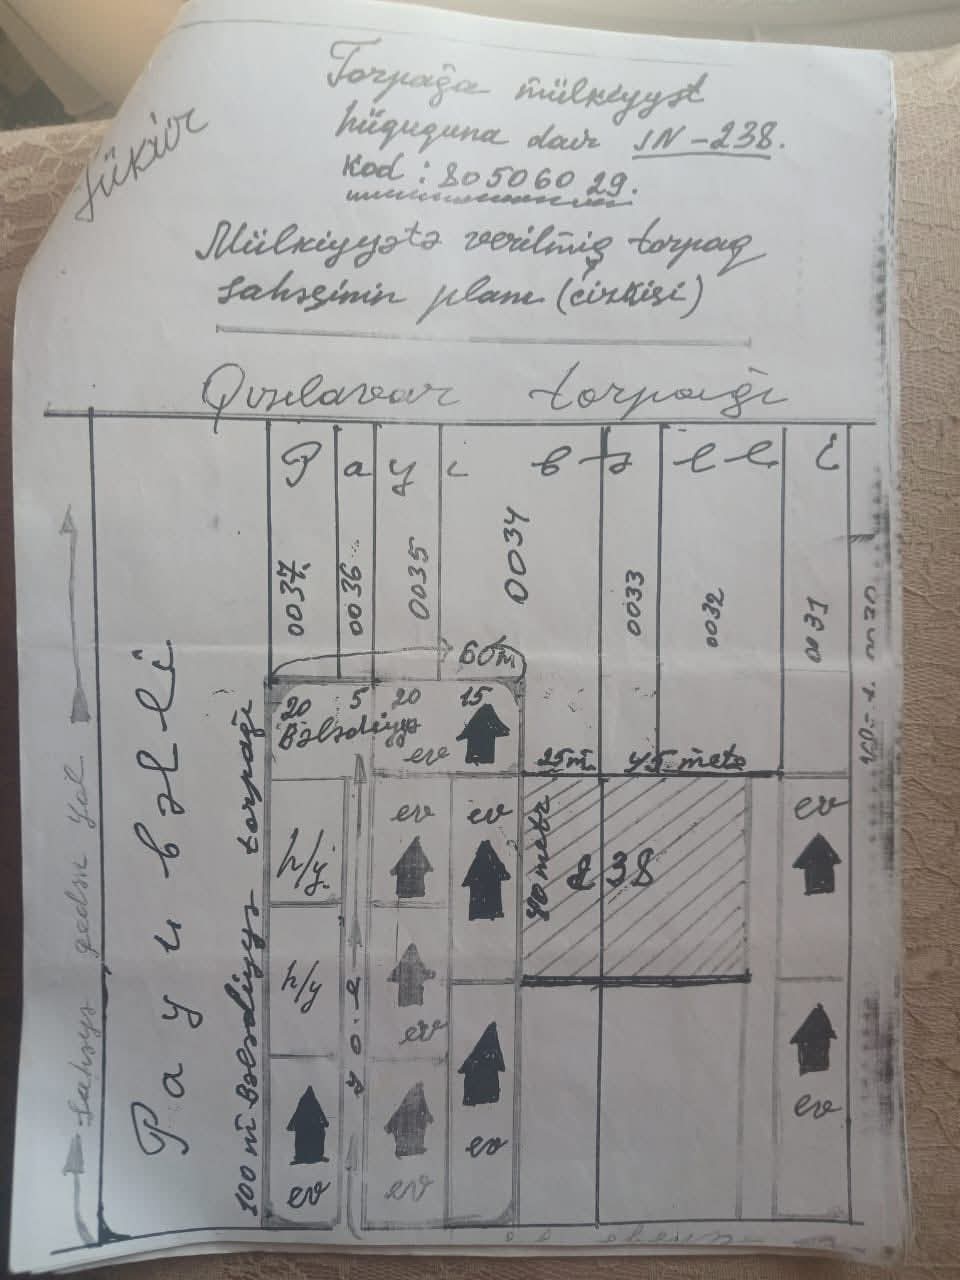 Torpağa mülkiyyət
hüququna dair JN-238.
Kod: 80506029.
Mülkiyyətə verilmiş torpaq
sahəsinin planı (cizkisi)
Qızılavar torpaği
P a y ı b ə l l i
0037
0036
0035
0034
0033
0032
0031
60m
20 5 20 15
Bələdiyyə
ev
25m. 45 metr
40 metr
238
ev ev ev
h/y.
h/y
ev
ev
ev
ev
ev
ev
yol
100 m Bələdiyyə torpaği
P a y ı b ə l l i
sahəyə gedən yol